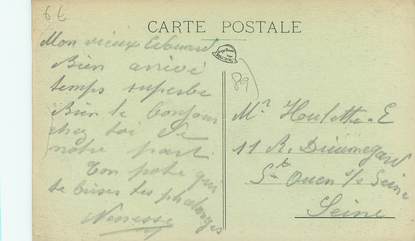 6 t
CARTE POSTALE
89
Mon vieux
Bien arrivé
temps superbe
Bien le bonjour
chez toi de
notre part
Ton pote qui
te serre tes phalanges
Nenesse
Mr Houlette E
11 R. Dieumegard
St Ouen s/s Seine
Seine